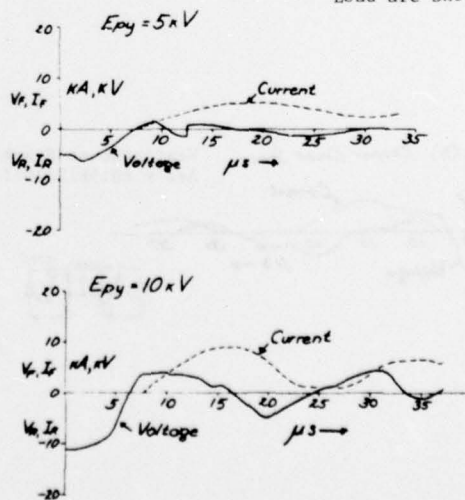 Load are
Epy = 5 kV
20
10
VF, IF
KA, KV
Current
0
5
10
15
20
25
30
35
VR, IR
Voltage
μs →
-10
-20
Epy = 10 kV
20
10
VF, IF
KA, KV
Current
0
5
10
15
20
25
30
35
VR, IR
Voltage
μs →
-10
-20